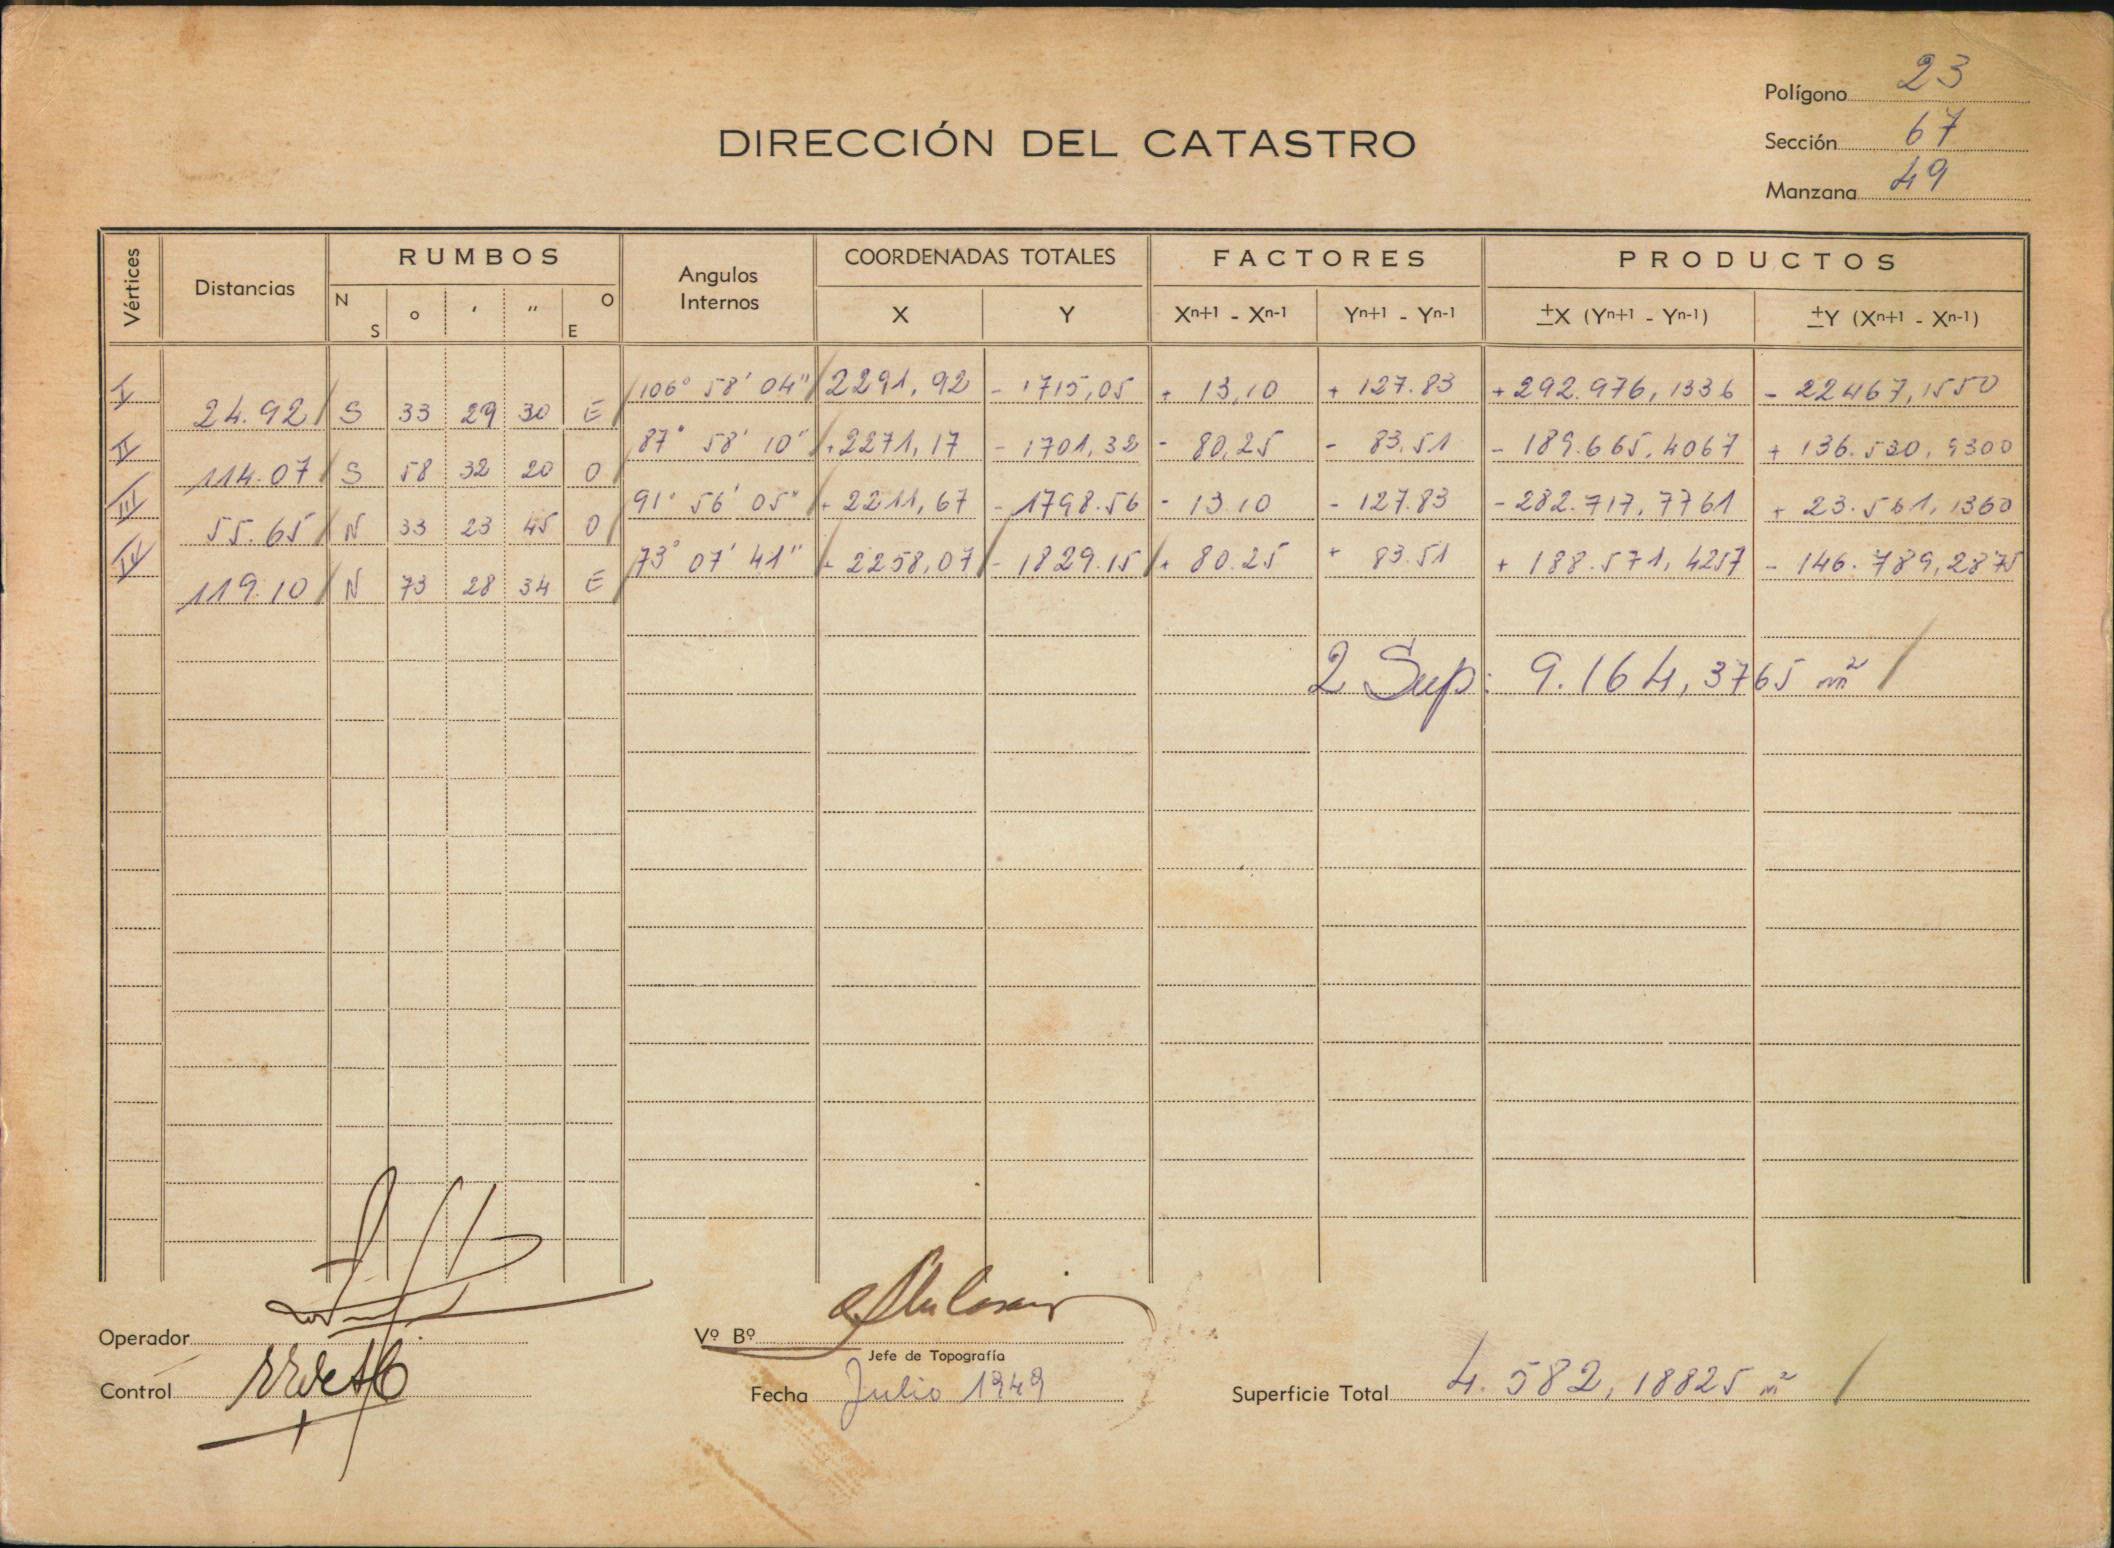 Polígono 23
DIRECCIÓN DEL CATASTRO
Sección 67
Manzana 49
Vértices Distancias RUMBOS Angulos Internos COORDENADAS TOTALES FACTORES PRODUCTOS
N S ° ' " O E X Y Xn+1 - Xn-1 Yn+1 - Yn-1 ±X (Yn+1 - Yn-1) ±Y (Xn+1 - Xn-1)
I 106° 58' 04" 2291,92 - 1715,05 + 13,10 + 127.83 + 292.976,1336 - 22467,1550
24.92 S 33 29 30 E
II 87° 58' 10" + 2271,17 - 1701,32 - 80,25 - 83.51 - 189.665,4067 + 136.530,9300
114.07 S 58 32 20 O
III 91° 56' 05" + 2211,67 - 1798.56 - 13.10 - 127.83 - 282.717,7761 + 23.561,1360
55.65 N 33 23 45 O
IV 73° 07' 41" + 2258,07 - 1829.15 + 80.25 + 83.51 + 188.571,4257 - 146.789,2875
119.10 N 73 28 34 E
2 Sup: 9.164,3765 m²
Operador
Vº Bº
Jefe de Topografía
Control
Fecha Julio 1949
Superficie Total 4.582,18825 m²